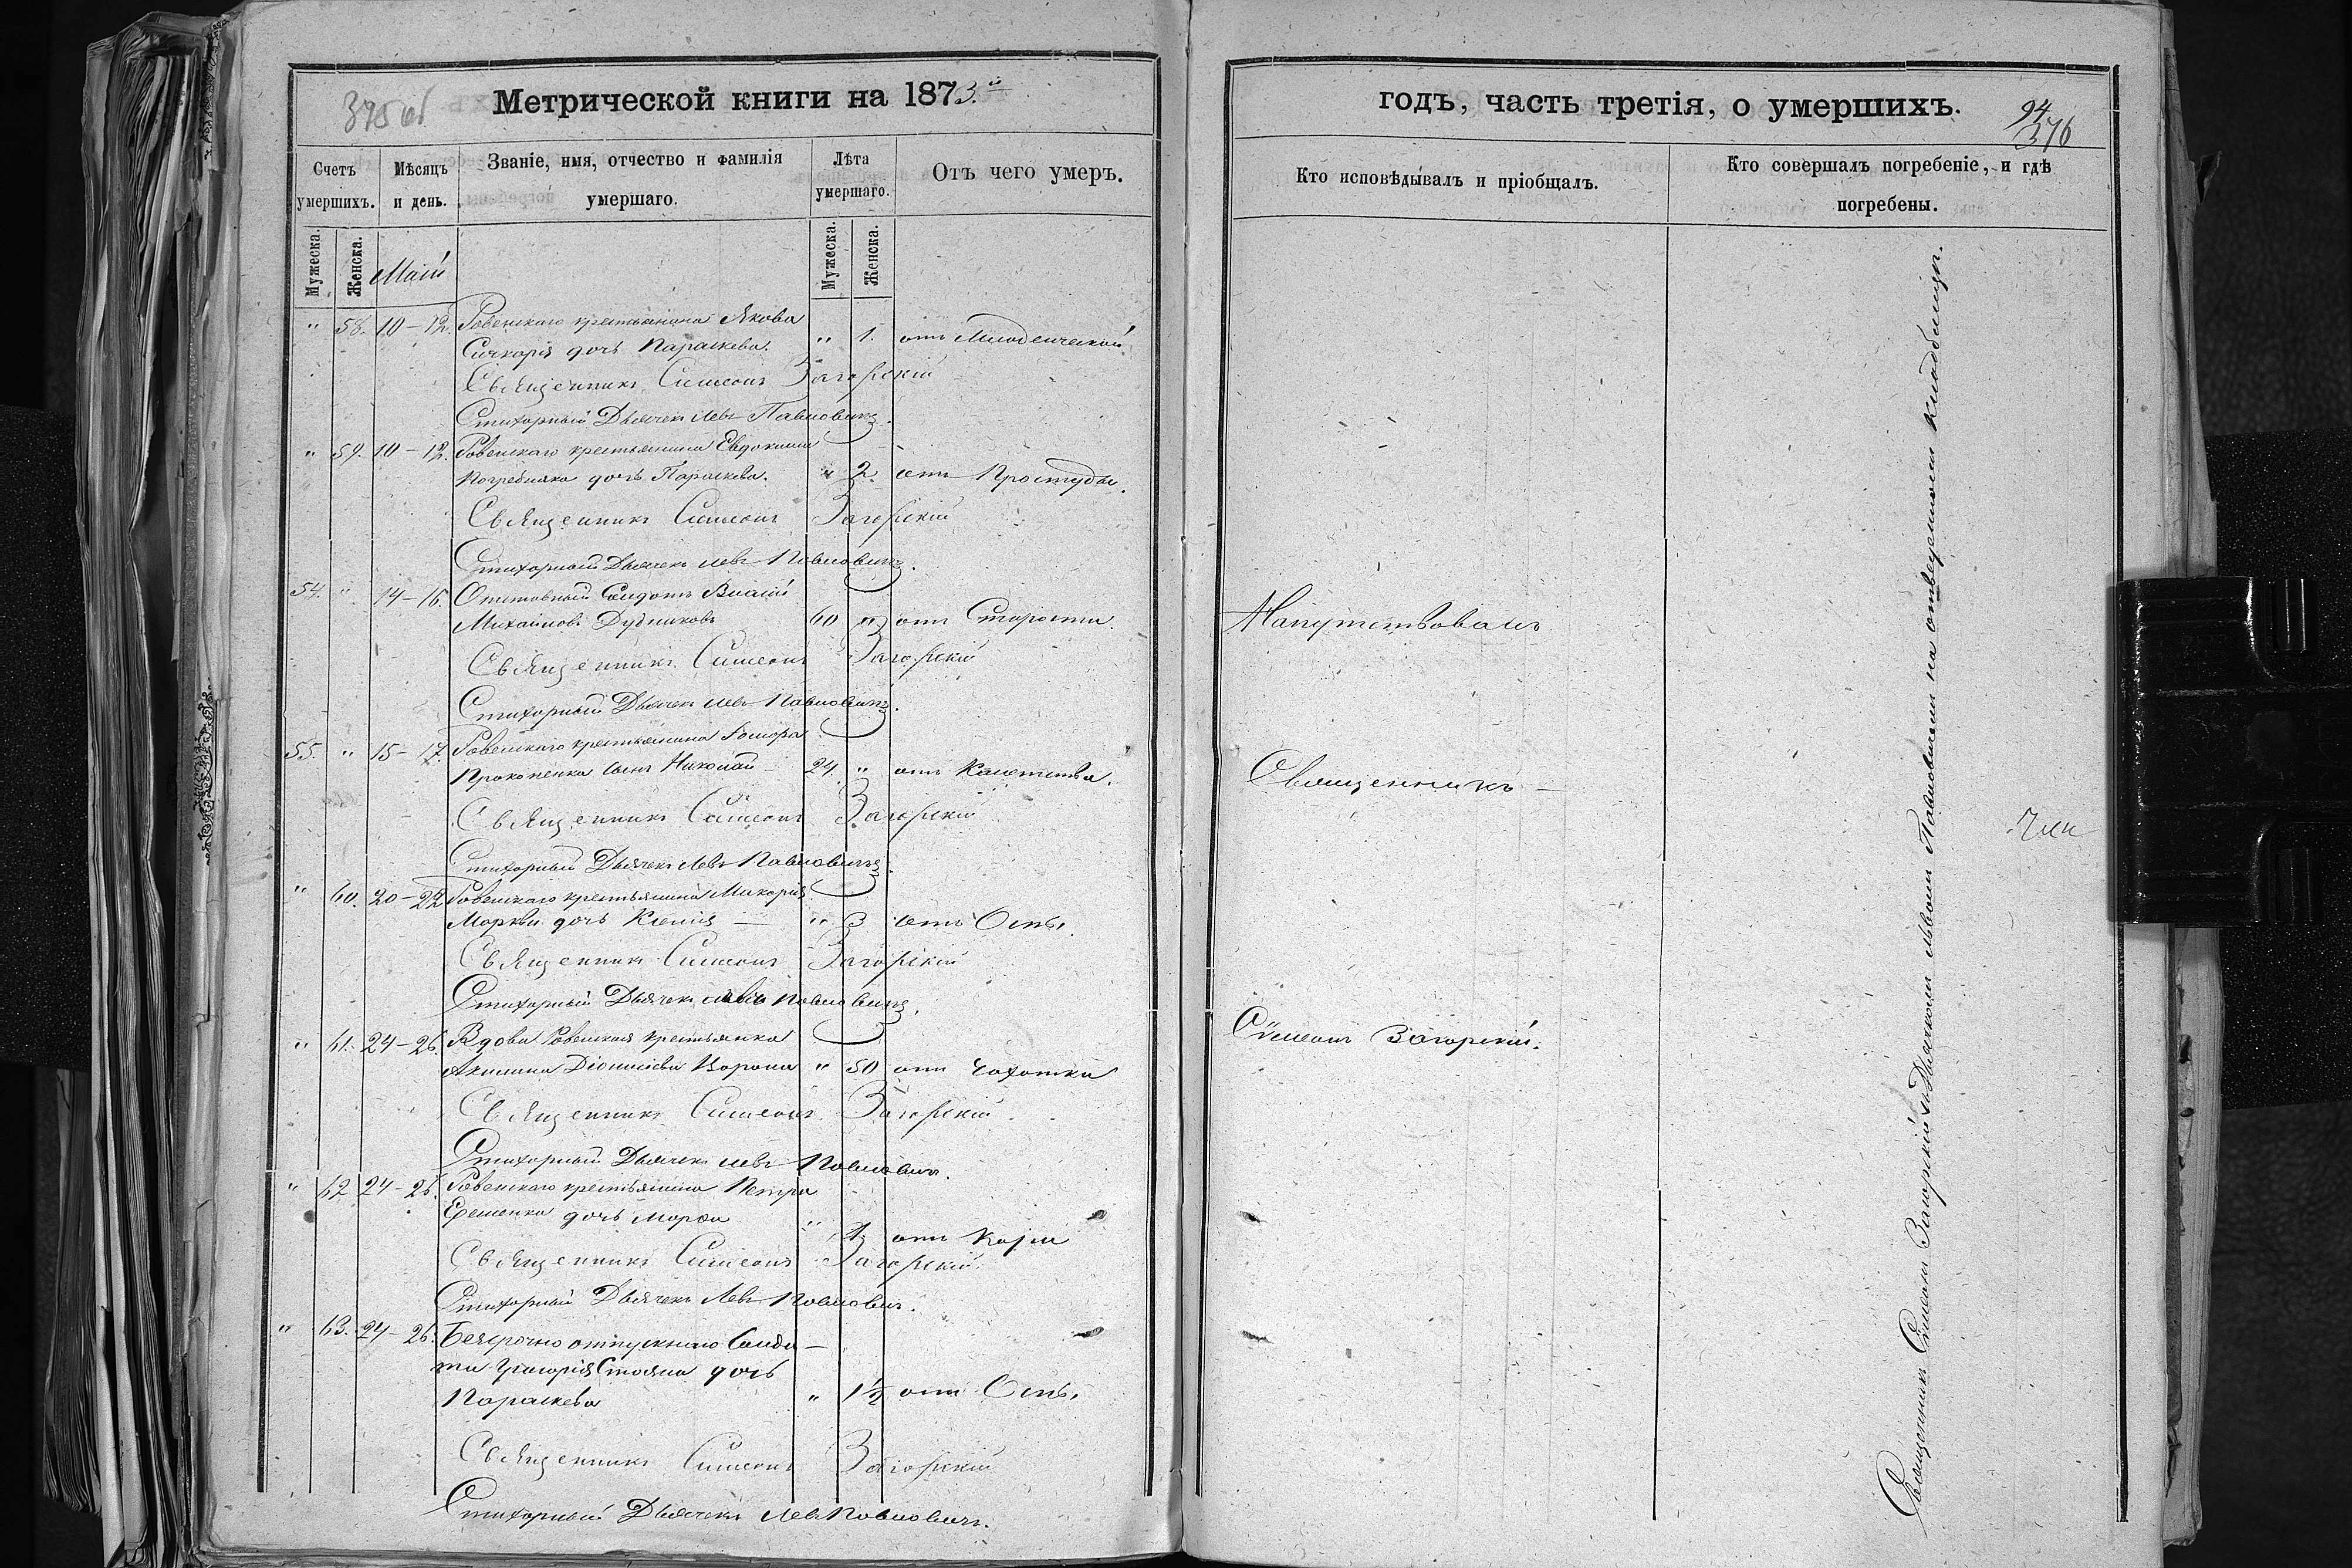 375 об
Метрической книги на 1873.й
Счетъ умершихъ.
Мѣсяцъ и день.
Званіе, имя, отчество и фамилія умершаго.
Лѣта умершаго.
Отъ чего умеръ.
Мужеска.
Женска.
Маій
Мужеска.
Женска.
" 58. 10-12. Ровенскаго крестьянина Якова
Сичкорія дочь Параскева. " 1. отъ Млоденческой
Священникъ Симеонъ Загорскій
Стихорный Дьячекъ Левъ Павловичъ.
" 59. 10-12. Ровенскаго крестьянина Евдокима
Погребняка дочь Параскева. " 2. отъ Простуды.
Священникъ Симеонъ Загорскій
Стихорный Дьячекъ Левъ Павловичъ.
54. " 14-16. Отставный Солдатъ Власій
Михайловъ Дудниковъ 60 " отъ Старости.
Священникъ Симеонъ Загорскій
Стихорный Дьячекъ Левъ Павловичъ.
55. " 15-17. Ровенскаго крестьянина
Прокопенка сынъ Николай - 24. " отъ
Священникъ Симеонъ Загорскій
Стихорный Дьячекъ Левъ Павловичъ.
" 60. 20-22 Ровенскаго крестьянина Макарія
Моркви дочь Ксенія - " 3 отъ Оспы.
Священникъ Симеонъ Загорскій
Стихорный Дьячекъ Левъ Павловичъ.
" 61. 24-26. Вдова Ровенская крестьянка
Акилина Діонисіева Ворона " 50 отъ Чахотки
Священникъ Симеонъ Загорскій
Стихорный Дьячекъ Левъ Павловичъ.
" 62 24-26. Ровенскаго крестьянина Петра
Ефеменка дочь Марфа " 1 отъ Кори
Священникъ Симеонъ Загорскій
Стихорный Дьячекъ Левъ Павловичъ.
" 63. 24-26. Безсрочно отпускнаго Солда-
та Григорія Стояна дочь
Параскева " 1½ отъ Оспы.
Священникъ Симеонъ Загорскій
Стихорный Дьячекъ Левъ Павловичъ.
годъ, часть третія, о умершихъ.
94
376
Кто исповѣдывалъ и пріобщалъ.
Кто совершалъ погребеніе, и гдѣ погребены.
Напутствовалъ
Священникъ -
Симеонъ Загорскій.
Священникъ Симеонъ Загорскій съ Дьячкомъ Львомъ Павловичемъ на отведенномъ кладбищѣ.